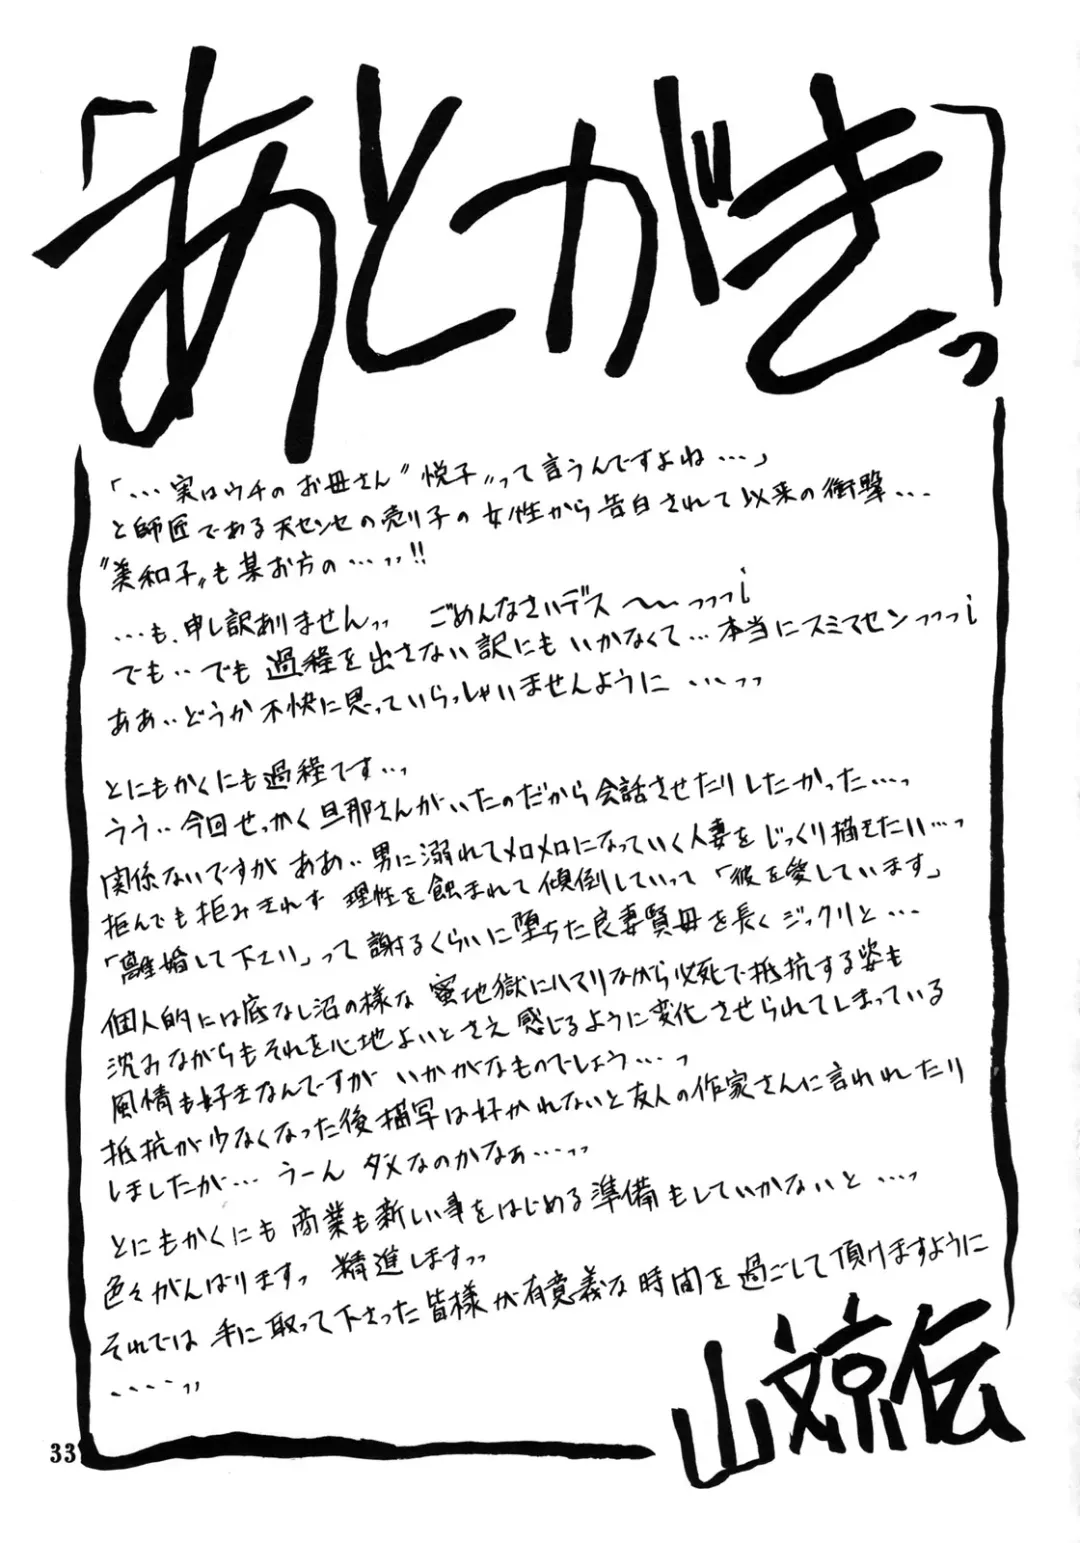 「あとがきっ」
「…実はウチのお母さん"悦子"って言うんですよね…」
と師匠である天センセの売り子の女性から告白されて以来の衝撃…
"美和子"も某お方の…ッ!!
…も、申し訳ありませんッ ごめんなさいデス〜〜っっっ!
でも‥でも過程を出さない訳にもいかなくて…本当にスミマセンっっっ!
ああ‥どうか不快に思っていらっしゃいませんように…ッ
とにもかくにも過程です‥っ
うう‥今回せっかく旦那さんがいたのだから会話させたりしたかった…っ
関係ないですがああ‥男に溺れてメロメロになっていく人妻をじっくり描きたい…っ
拒んでも拒みきれず理性を蝕まれて傾倒していって「彼を愛しています」
「離婚して下さい」って謝るくらいに堕ちた良妻賢母を長くジックリと…
個人的には底なし沼の様な蜜地獄にハマりながら必死で抵抗する姿も
沈みながらもそれを心地よいとさえ感じるように変化させられてしまっている
風情も好きなんですがいかがなものでしょう…っ
抵抗が少なくなった後描写は好かれないと友人の作家さんに言われたり
しましたが…うーんダメなのかなぁ…ッ
とにもかくにも商業も新しい事をはじめる準備もしていかないと…っ
色々がんばりますっ 精進しますッ
それでは手に取って下さった皆様が有意義な時間を過ごして頂けますように
‥‥ッ
山文京伝
33